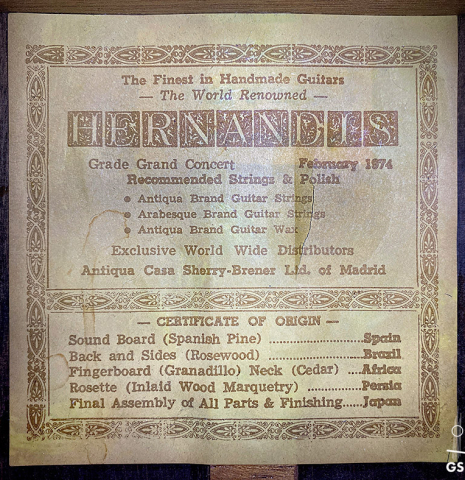 The Finest in Handmade Guitars
— The World Renowned —
HERNANDIS
Grade Grand Concert February 1974
Recommended Strings & Polish
• Antiqua Brand Guitar Strings
• Arabesque Brand Guitar Strings
• Antiqua Brand Guitar Wax
Exclusive World Wide Distributors
Antiqua Casa Sherry-Brener Ltd. of Madrid
— CERTIFICATE OF ORIGIN —
Sound Board (Spanish Pine) ......................Spain
Back and Sides (Rosewood) ......................Brazil
Fingerboard (Granadillo) Neck (Cedar) ...Africa
Rosette (Inlaid Wood Marquetry) .............Persia
Final Assembly of All Parts & Finishing.....Japan
GS